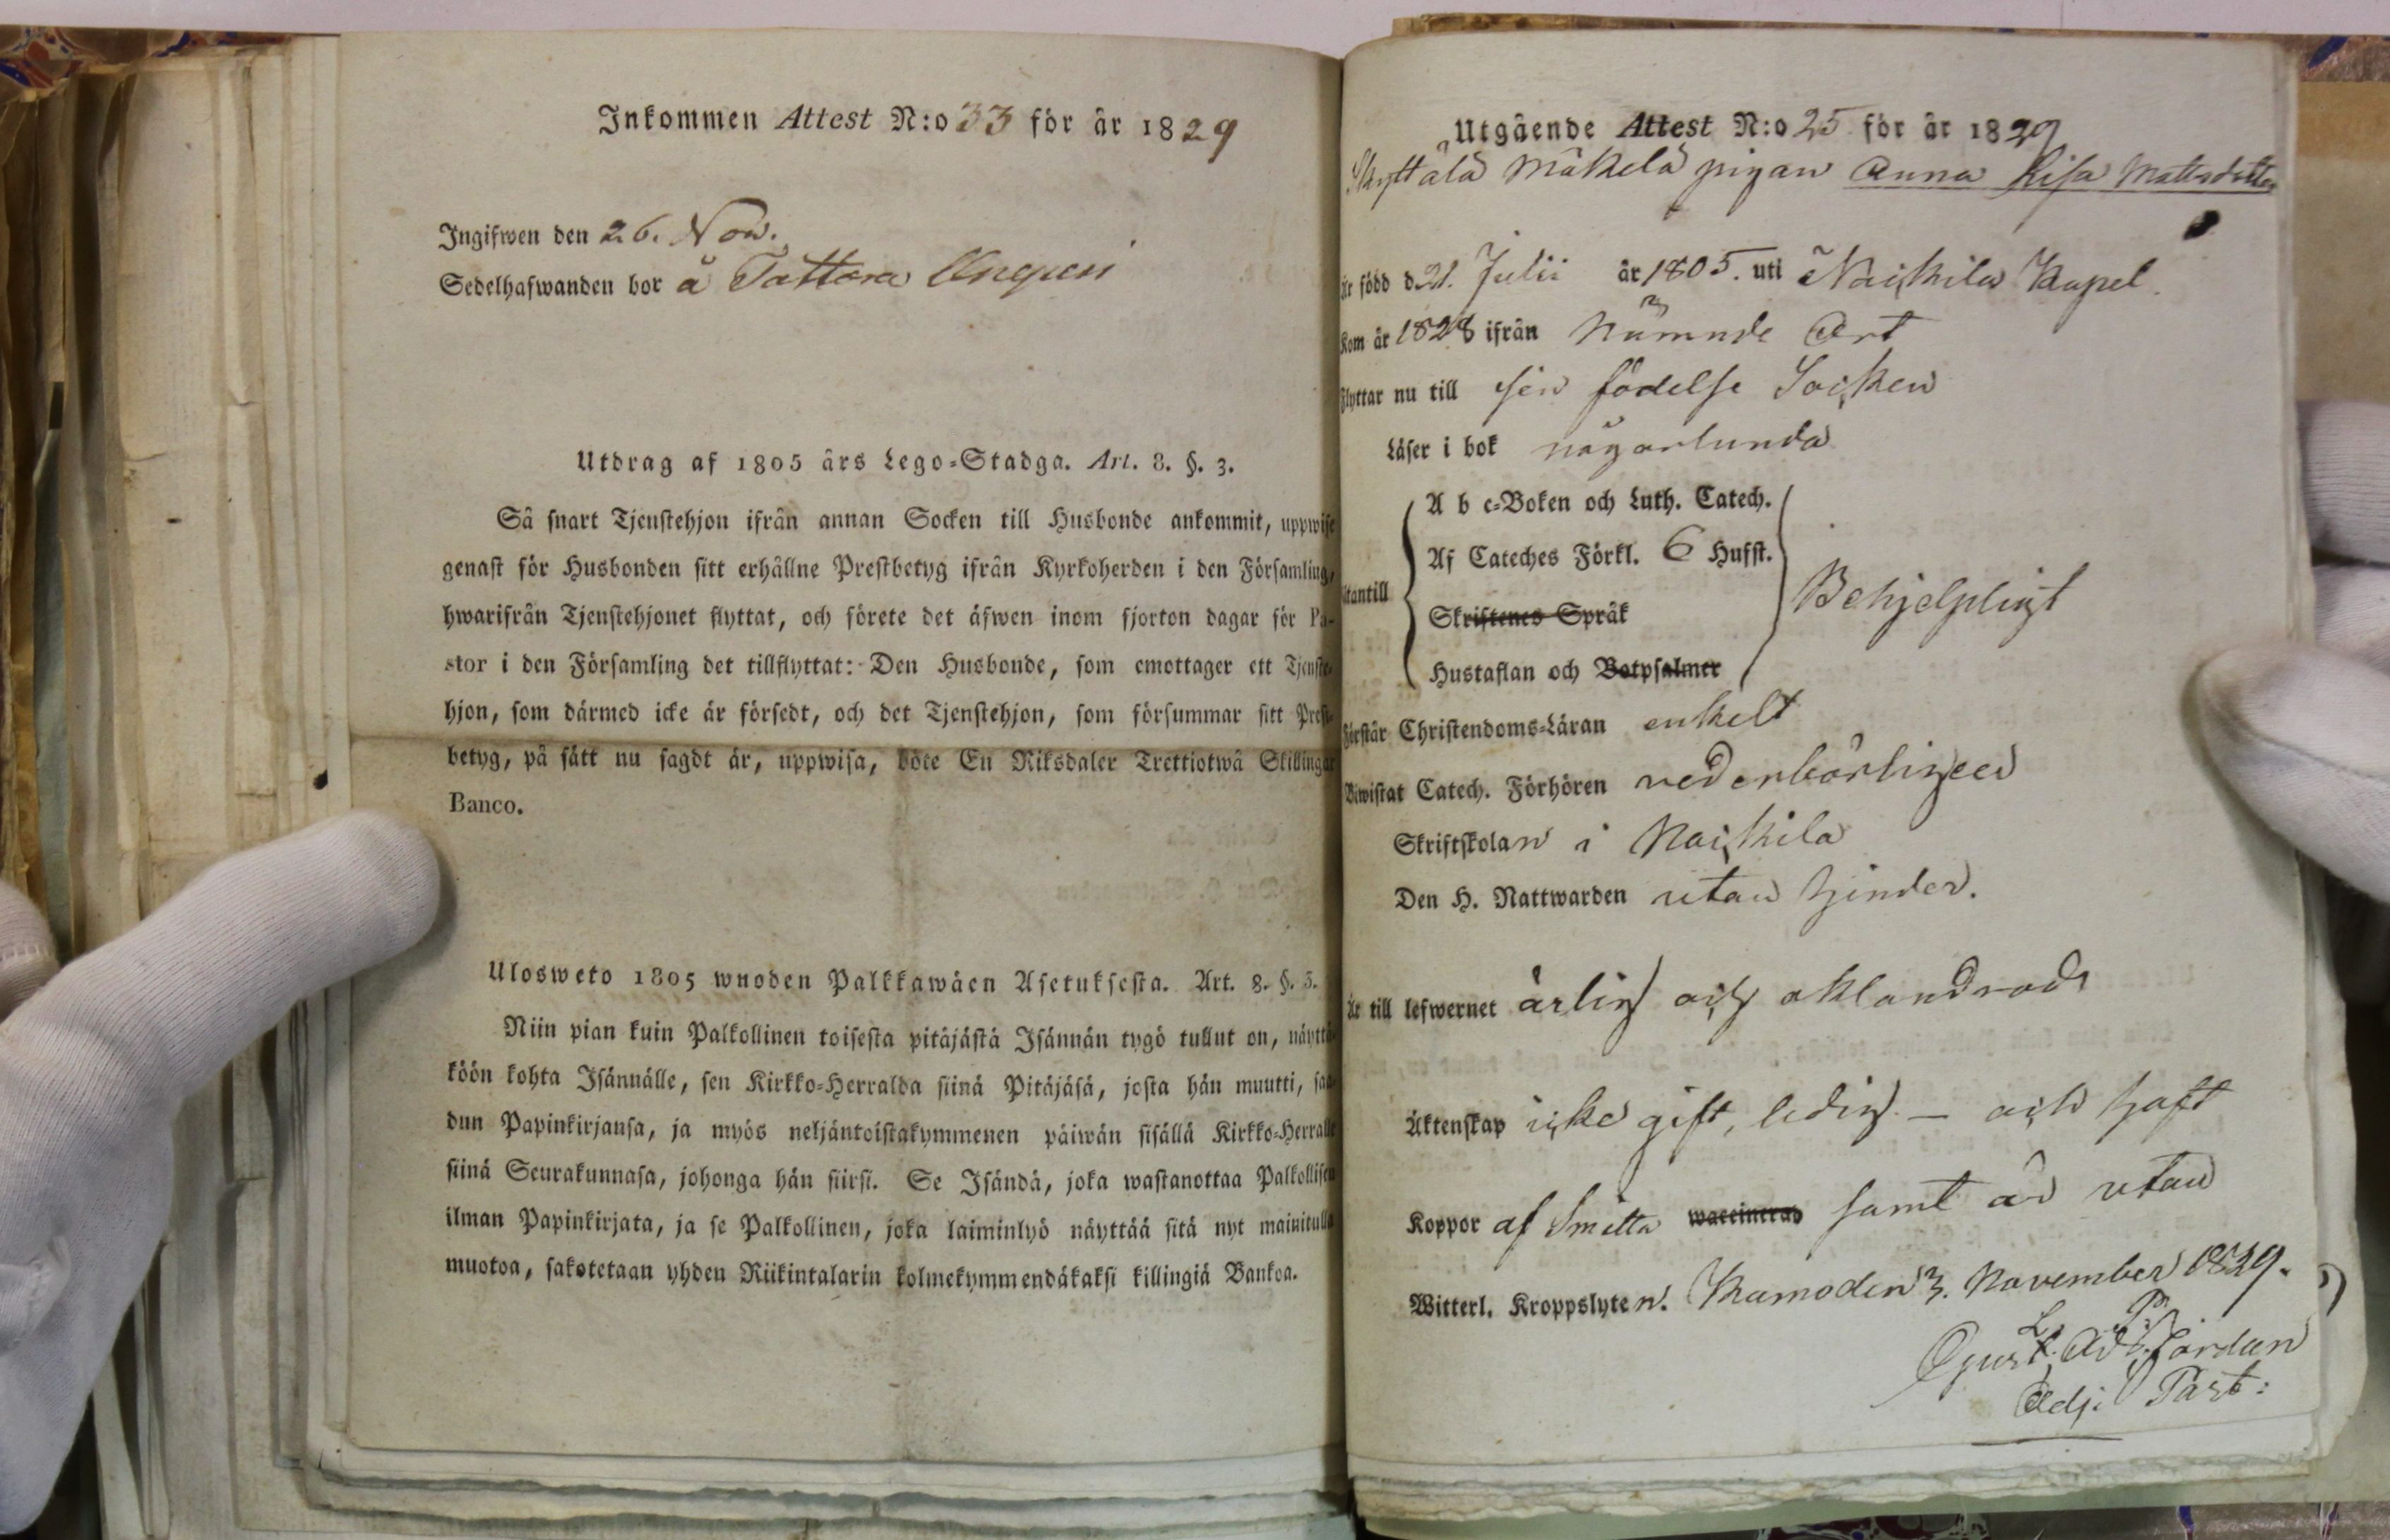 Inkommen Attest N:o 33 för år 1829
Ingifwen den 26. Nov.
Sedelhafwanden bor å Tattara
Utdrag af 1805 års Lego-Stadga. Art. 8. §. 3.
Så snart Tjenstehjon ifrån annan Socken till Husbonde ankommit, uppwise
genast för Husbonden sitt erhållne Prestbetyg ifrån Kyrkoherden i den Församling,
hwarifrån Tjenstehjonet flyttat, och förete det äfwen inom fjorton dagar för Pa-
stor i den Församling det tillflyttat: Den Husbonde, som emottager ett Tjenste-
hjon, som därmed icke är försedt, och det Tjenstehjon, som försummar sitt Prest-
betyg, på sätt nu sagdt är, uppwisa, böte En Riksdaler Trettiotwå Skillingar
Banco.
Ulosweto 1805 wuoden Palkkawäen Asetuksesta. Art. 8. §. 3.
Niin pian kuin Palkollinen toisesta pitäjästä Isännän tygö tullut on, näyttä-
köön kohta Isännälle, sen Kirkko-Herralda siinä Pitäjäsä, josta hän muutti, saa-
dun Papinkirjansa, ja myös neljäntoistakymmenen päiwän sisällä Kirkko-Herralle
siinä Seurakunnasa, johonga hän siirsi. Se Isändä, joka wastanottaa Palkollisen
ilman Papinkirjata, ja se Palkollinen, joka laiminlyö näyttää sitä nyt mainitulla
muotoa, sakotetaan yhden Riikintalarin kolmekymmendäkaksi killingiä Bankoa.
Utgående Attest N:o 25 för år 1829
Skyttälä Mäkelä pigan Anna Lisa Mattsdotter
Är född d 21. Julii år 1805. uti Naiskila Kapel.
Kom år 1828 ifrån nämnde Ort
Flyttar nu till sin födelse Socken
Läser i bok någorlunda
Utantill
A b c-Boken och Luth. Catech.
Af Cateches Förkl. 6 Hufst.
Skriftenes Språk
Hustaflan och Botpsalmer
Behjelpligt
Förstår Christendoms-Läran enkelt
Biwistat Catech. Förhören vederbörligen
Skriftskolan i Naiskila
Den H. Nattwarden utan hinder.
Är till lefwernet ärlig och oklandrad
Äktenskap icke gift, ledig – och haft
Koppor af Smitta waccinerad samt är utan
Witterl. Kroppslyten. Kumo den 3. November 1829.
Gust. Ad. Jordan
Adj: Past: